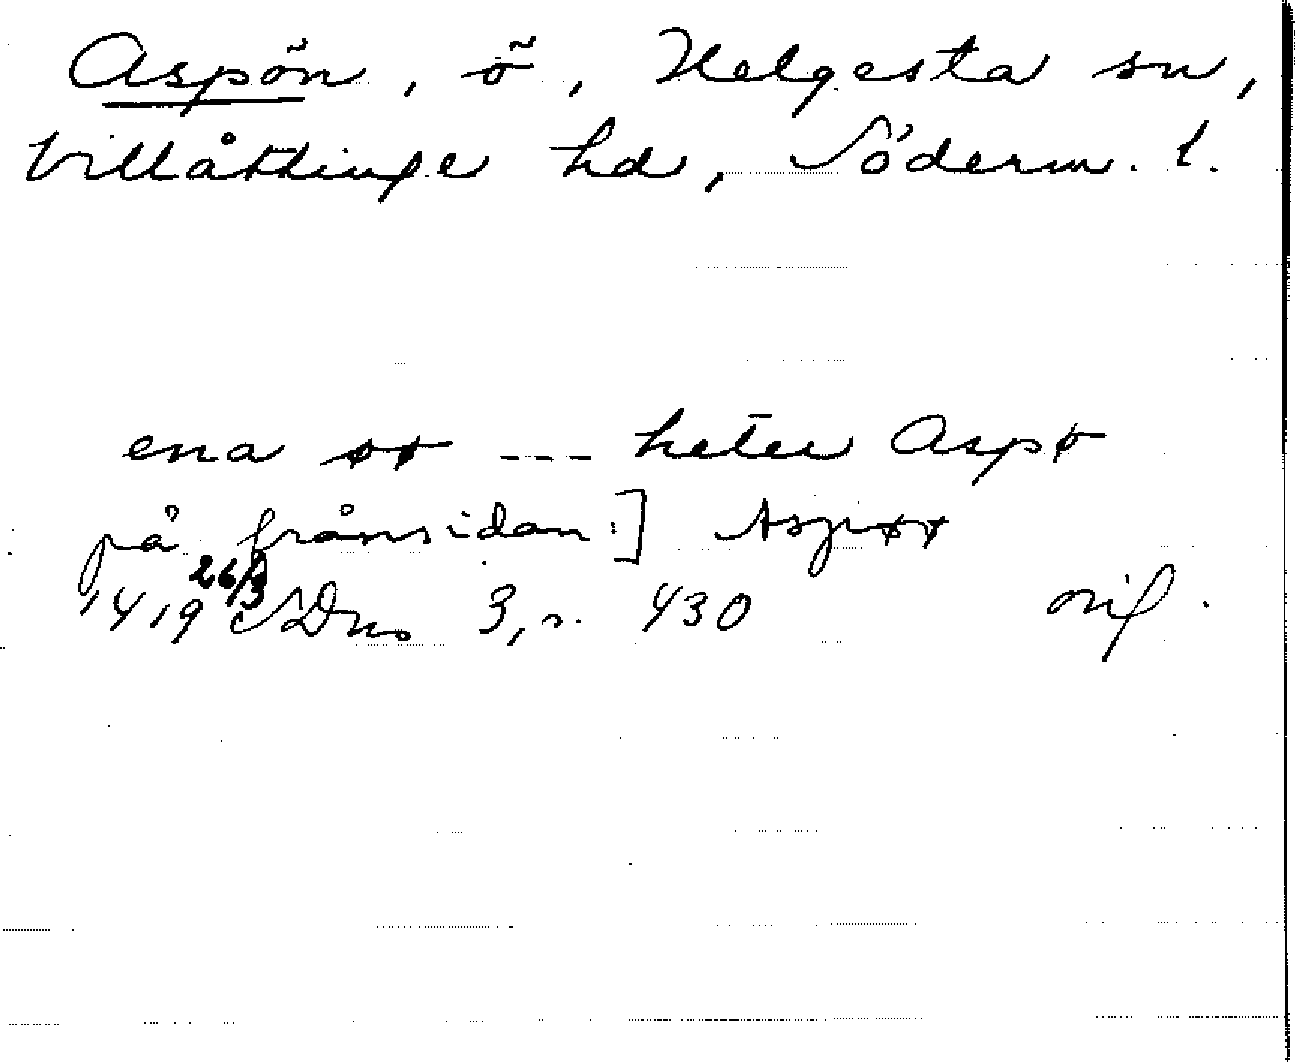 Aspön, ö, Helgesta sn,
Villåttinge hd, Söderm. l.
ena øø --- heter Aspø
på frånsidan:] Aspøø
1419 26/3 SDns 3, s. 430 orig.